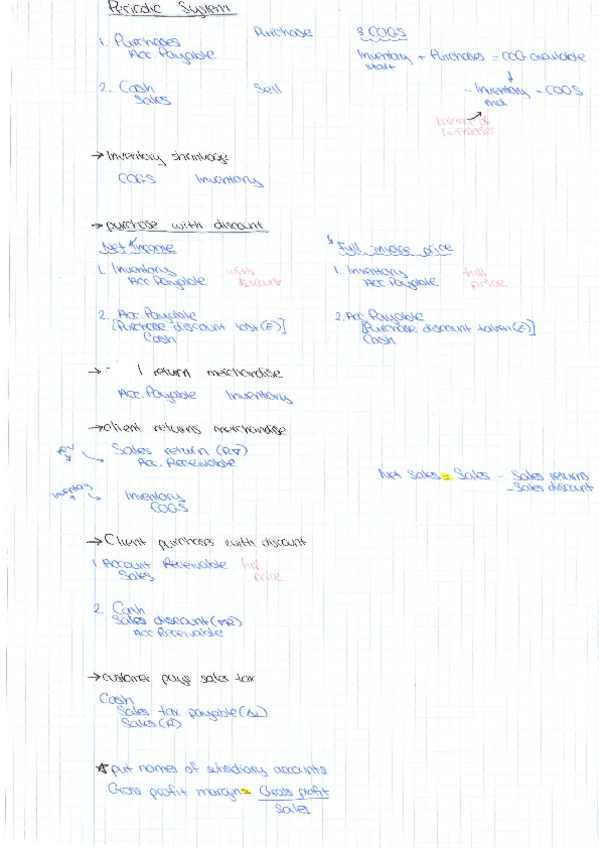 Periodic System
1. Purchases
Acc. Payable
Purchase
2. Cash
Sales
Sell
3. COGS
Inventory + Purchases = COG available
start
- Inventory = COGS
end
balance of
inventories
→ Inventory shrinkage
COGS Inventory
→ purchase with discount
Net Income
1. Inventory
Acc Payable
with
discount
2. Acc. Payable
[Purchase discount lost(E)]
Cash
Full invoice price
1. Inventory
Acc Payable
full
price
2. Acc. Payable
[Purchase discount taken(E)]
Cash
→ I return merchandise
Acc. Payable Inventory
→ client returns merchandise
Sales return (R↓)
Acc. Receivable
Inventory
Inventory
COGS
Net Sales = Sales - Sales returns
- Sales discount
→ Client purchases with discount
1. Account Receivable
Sales
full
price
2. Cash
Sales discount
Acc Receivable
→ customer pays sales tax
Cash
Sales tax payable
Sales (R)
* put names of subsidiary accounts
Gross profit margin = Gross profit
Sales